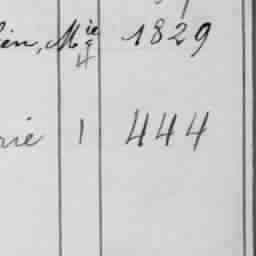 ien, Mie 1829
4
rie 1 444